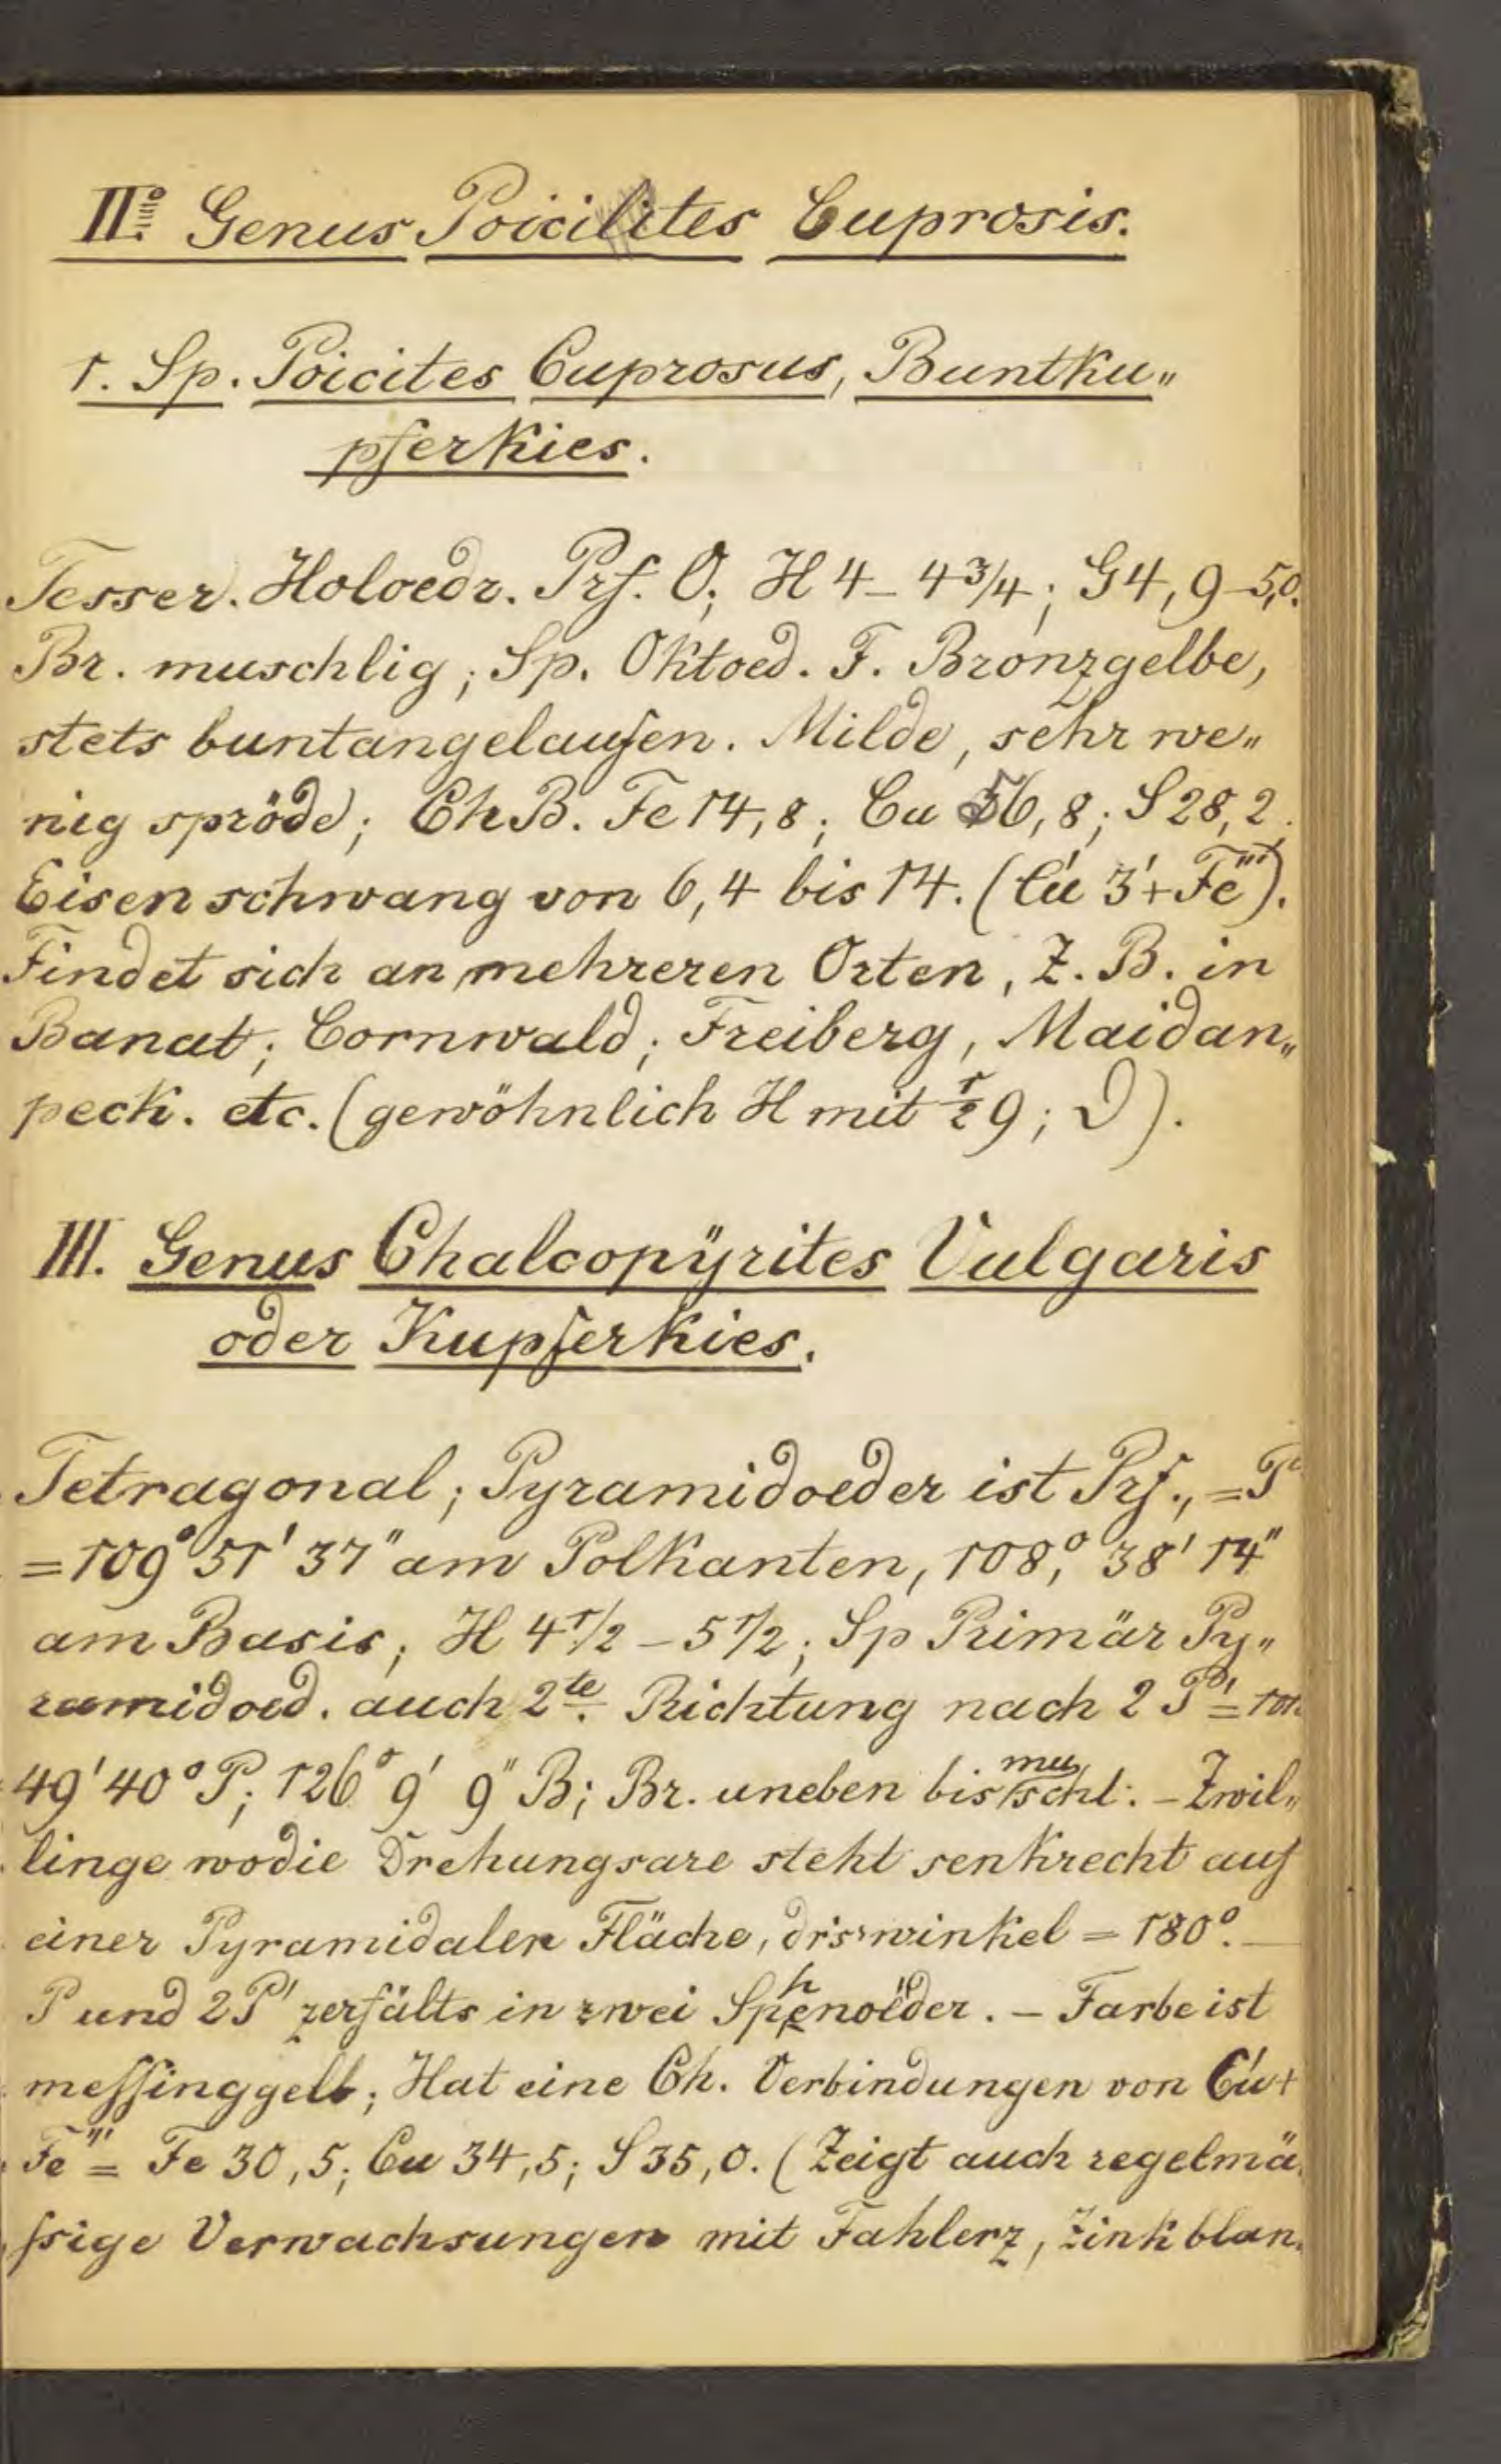 IIo. Genus Poicilites Cuprosis.
1. Sp. Poicites Cuprosus, Buntku„
pferkies.
Tesser. Holoedr. Prf. O; H 4 – 4 3/4; G 4,9–5,0.
Br. muschlig; Sp. Oktoed. F. Bronzgelbe,
stets buntangelaufen. Milde, sehr we„
nig spröde; Ch B. Fe 14,8; Cu 56,8; S 28,2.
Eisen schwang von 6,4 bis 14. (Cu' 3' + Fe''').
Findet sich an mehreren Orten, Z. B. in
Banat; Cornwald; Freiberg, Maidan„
peck. etc. (gewöhnlich H mit 1/2 9; D).
III. Genus Chalcopÿrites Vulgaris
oder Kupferkies.
Tetragonal; Pyramidoeder ist Prf., = P
= 109° 51' 37" am Polkanten, 108,° 38' 14"
am Basis; H 4 1/2 – 5 1/2; Sp Primär Py„
ramidoed. auch 2te. Richtung nach 2 P' = 101
49' 40° P; 126° 9' 9" B; Br. uneben bis muschl: – Zwil„
linge wodie Drehungsaxe steht senkrecht auf
einer Pyramidalen Fläche, drswinkel = 180°. —
P und 2P' zerfälts in zwei Sphenoëder. – Farbe ist
meſſinggelb; Hat eine Ch. Verbindungen von Cu' +
Fe''' = Fe 30,5; Cu 34,5; S 35,0. (Zeigt auch regelmä„
ſsige Verwachsungen mit Fahlerz, Zinkblan„